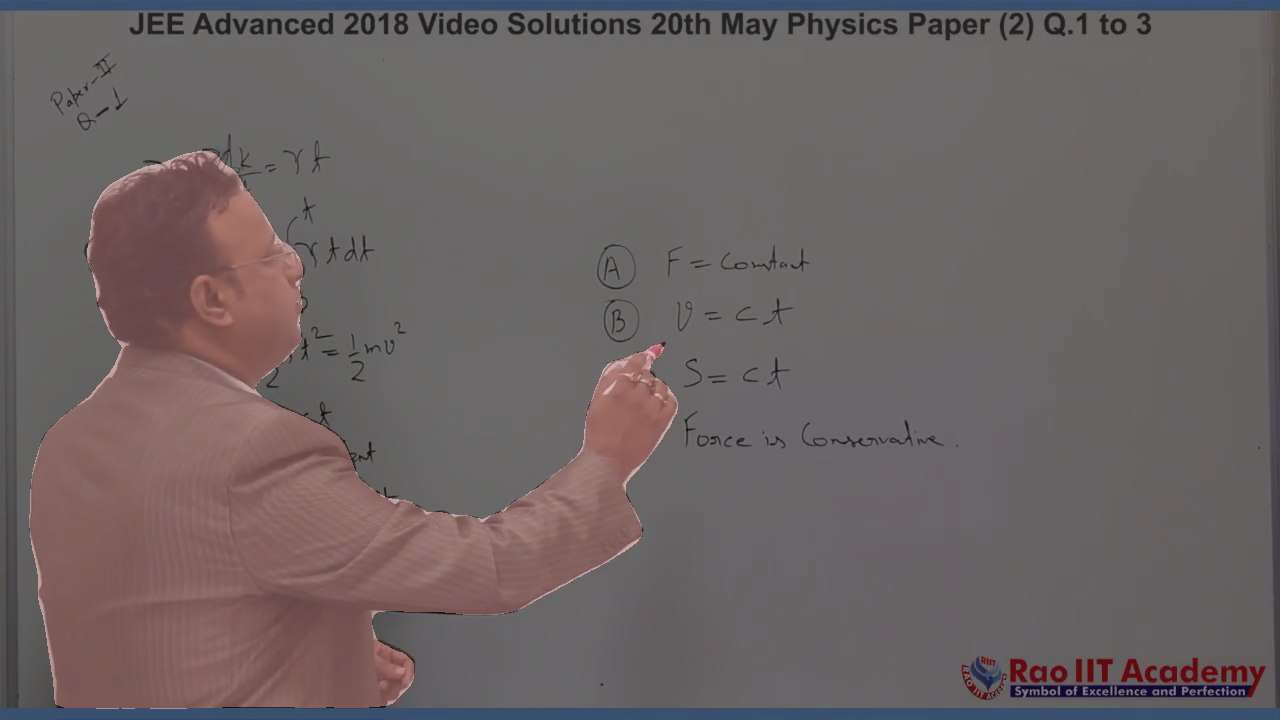 JEE Advanced 2018 Video Solutions 20th May Physics Paper (2) Q.1 to 3
Paper-II
Q-1
dk = γ t
t
γ t dt
t² = 1/2 mv²
2
t
A F = Constant
B v = c t
S = c t
Force is Conservative.
RIIT
RAO IIT ACADEMY
Rao IIT Academy
Symbol of Excellence and Perfection